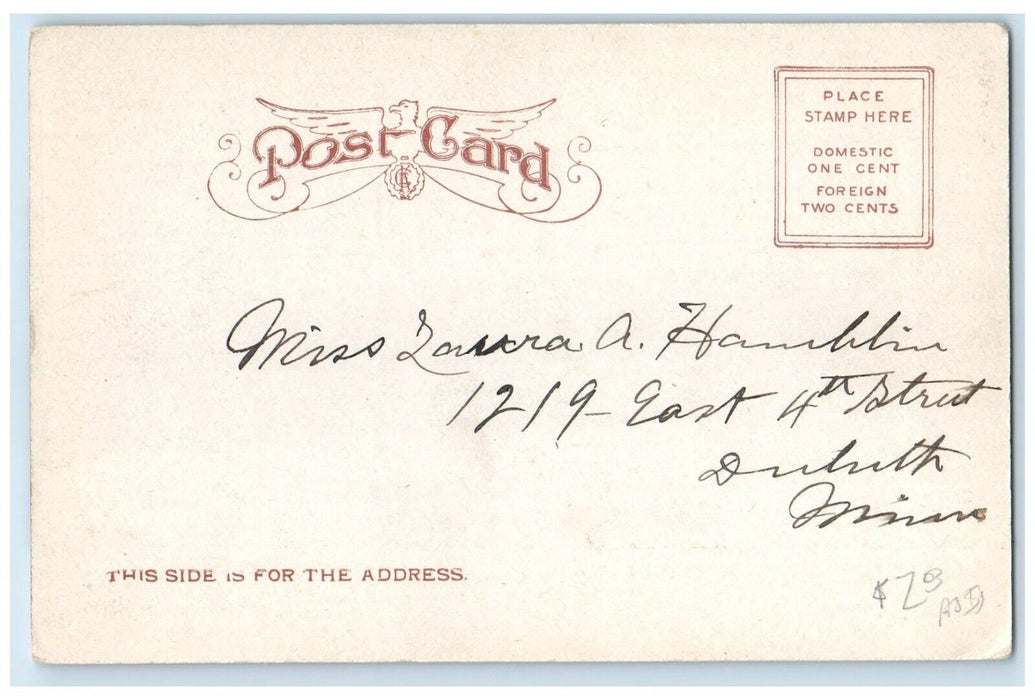 Post Card
PLACE
STAMP HERE
DOMESTIC
ONE CENT
FOREIGN
TWO CENTS
Miss Laura A. Hamblin
1219 - East 4th Street
Duluth
Minn
THIS SIDE IS FOR THE ADDRESS.